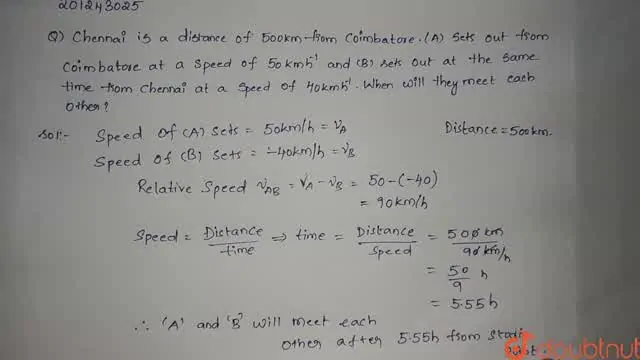 201243025
Q) Chennai is a distance of 500km from Coimbatore. (A) sets out from
Coimbatore at a speed of 50kmh⁻¹ and (B) sets out at the same
time from Chennai at a speed of 40kmh⁻¹. When will they meet each
other?
Sol:- Speed Of (A) sets = 50km/h = VA Distance = 500km.
Speed Of (B) sets = -40km/h = VB
Relative Speed VAB = VA - VB = 50-(-40)
= 90km/h
Speed = Distance/time ⇒ time = Distance/Speed = 500 km/90 km/h
= 50/9 h
= 5.55h
∴ 'A' and 'B' will meet each
other after 5.55h from
doubtnut